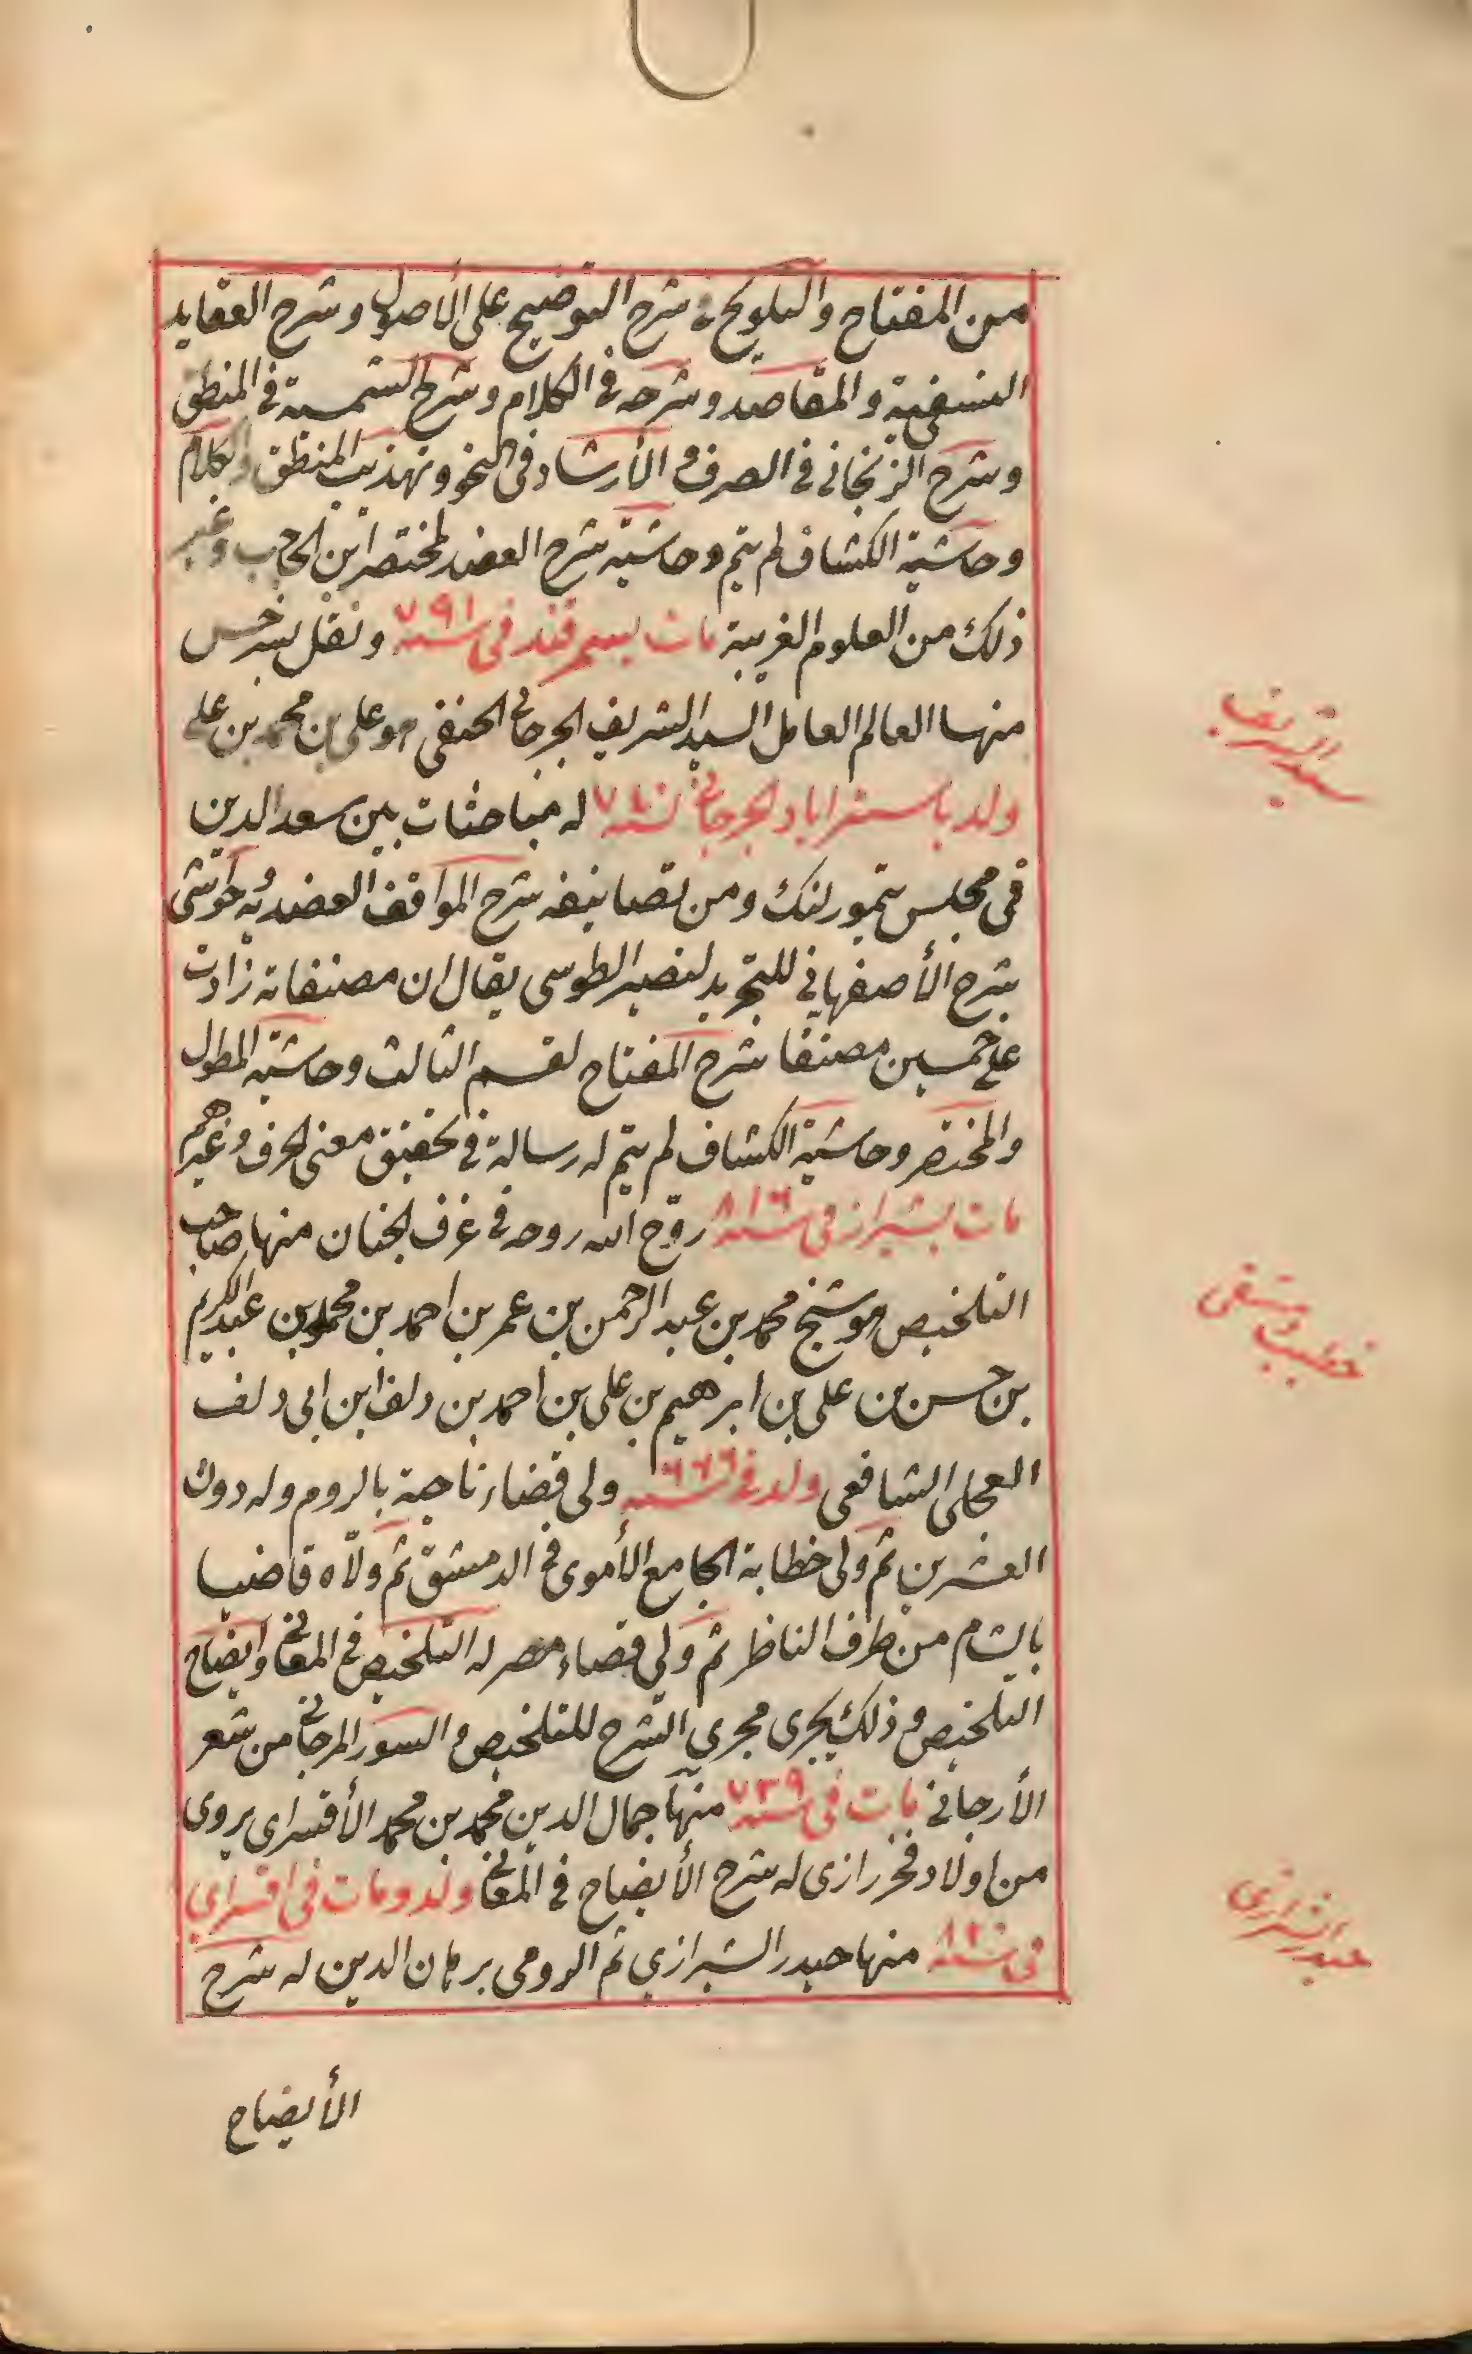 من المفتاح والتلويح شرح التوضيح على الأصول وشرح العقايد
النسفية والمقاصد وشرحه فى الكلام وشرح الشمسية فى المنطق
وشرح الزنجانى فى الصرف والأرشاد فى النحو وتهذيب المنطق والكلام
وحاشية الكشاف لم يتم وحاشية شرح العضد لمختصر ابن الحاجب وغير
ذلك من العلوم الغريبة مات بسمرقند فى سنة ٧٩١ ونقل بسرخس
منها العالم العامل السيد الشريف الجرجانى الحنفى هو على بن محمد بن على
ولد باستراباد الجرجانى له مباحثات بين سعد الدين
فى مجلس تيمور لنك ومن تصانيفه شرح المواقف العضديه حواشى
شرح الأصفهانى للتجريد لنصير الطوسى يقال ان مصنفاته زادت
على خمسين مصنفا شرح المفتاح لقسم الثالث وحاشية المطول
والمختصر وحاشية الكشاف لم يتم له رسالة فى تحقيق معنى الحرف وغيرهم
مات بشيراز فى سنة ٨١٦ روّح الله روحه فى غرف الجنان منها صاحب
التلخيص هو شيخ محمد بن عبد الرحمن بن عمر بن احمد بن محمد بن عبد الكريم
بن حسن بن على بن ابرهيم بن على بن احمد بن دلف ابن ابى دلف
العجلى الشافعى ولد فى سنة ٦٦٦ ولى قضاء ناحية بالروم وله دون
العشرين ثم ولى خطابة الجامع الأموى فى الدمشق ثم ولّاه قاضيا
بالشام من طرف الناظر ثم ولى قضاء مصر له التلخيص فى المعانى وايضاح
التلخيص وذلك يجرى مجرى الشرح للتلخيص والسور المرجانى من شعر
الأرجانى مات فى سنة ٧٣٩ منها جمال الدين محمد بن محمد الأقسراى يروى
من اولاد فخر رازى له شرح الأيضاح فى المعانى ولد ومات فى اقسراى
فى سنة منها حيدر الشيرازى ثم الرومى برهان الدين له شرح
الأيضاح
سيد الشريف
خطيب دمشقى
حيدر الشيرازى